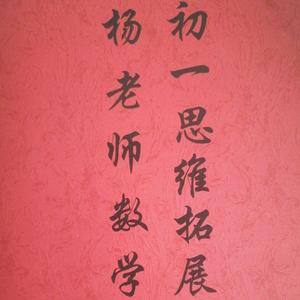 初一思维拓展
杨老师数学